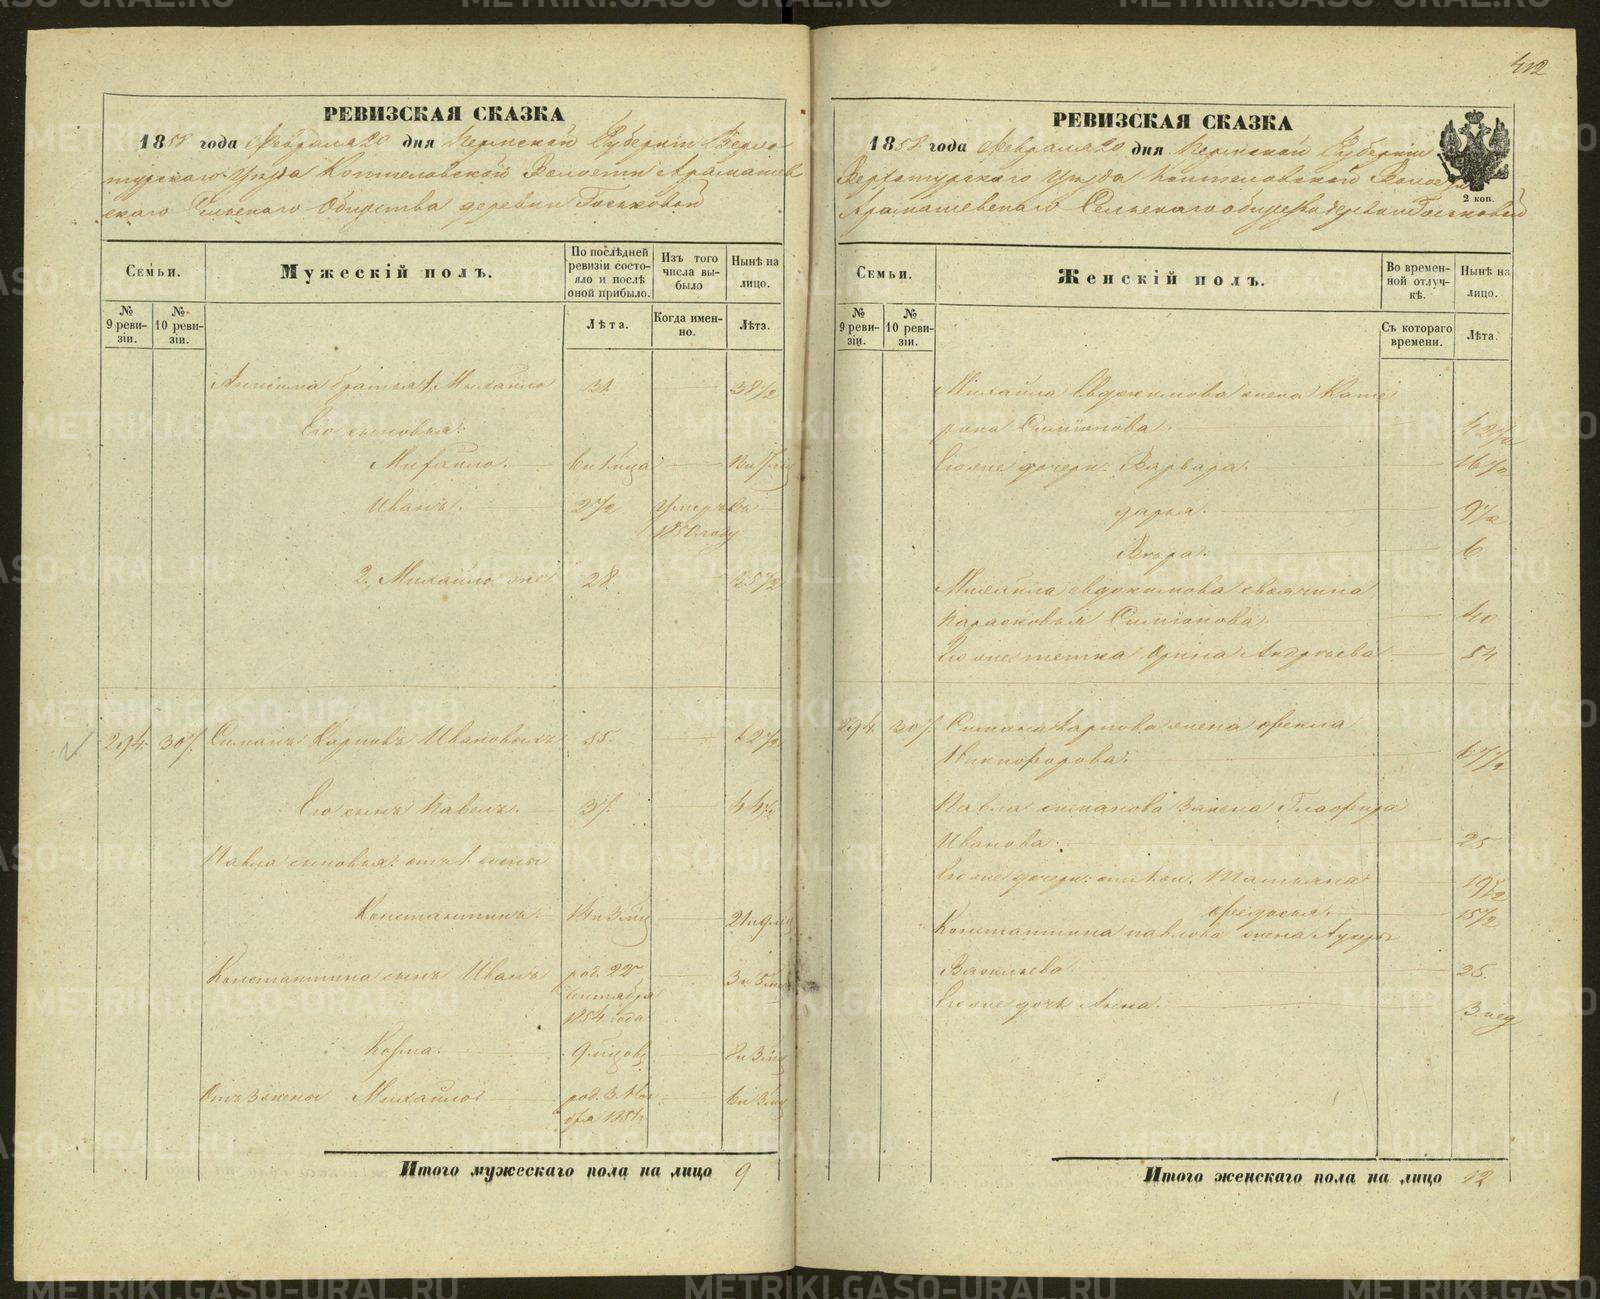 412
РЕВИЗСКАЯ СКАЗКА
1858 года Февраля 20 дня Пермской Губернiи Верхо-
турскаго Уѣзда Коптеловской Волости Арамашев
скаго Сельскаго Общества деревни Госьковой
Семьи.
Мужескій полъ.
По послѣдней ревизіи состо-
яло и послѣ оной прибыло.
Изъ того числа вы-
было
Нынѣ на лицо.
№ 9 реви-
зіи.
№ 10 реви-
зіи.
Лѣта.
Когда имен-
но.
Лѣта.
братья 1. Михайло 31 38 1/2
Его сыновья:
Иванъ. 2 1/2 Умеръ въ
1850 году
2. Михайло же 28
294 307 Симанъ Карповъ Ивановыхъ 55 62 1/2
Его сынъ Павелъ. 37 44 1/2
Павла сыновья: отъ 1 жены
Константинъ.
Константина сынъ Иванъ род. 22
Сентября
1854 года
Козма. 9 мѣсцовъ
Отъ 2 жены Михайло род. 3
Итого мужескаго пола на лицо 9
РЕВИЗСКАЯ СКАЗКА
1858 года Февраля 20 дня Пермской Губернiи
Верхотурскаго Уѣзда Коптеловской Волости
Арамашевскаго Сельскаго общества деревни Госьковой
2 коп.
Семьи.
Женскій полъ.
Во времен-
ной отлуч-
кѣ.
Нынѣ на лицо.
№ 9 реви-
зіи.
№ 10 реви-
зіи.
Съ котораго времени.
Лѣта.
Михайла Евдокимова жена Кате
рина Симiонова. 42 1/2
Его же дочери: Варвара. 16 1/2
дарья. 9 1/2
Вѣра. 6
Михайла евдокимова
Парасковья Симiонова. 40
Его же тетка Орина Андрѣева 54
294 307 Симана Карпова жена Фекла
Никифорова. 67 1/2
Павла симанова 2 жена Глафира
Иванова. 25
Его же дочери: Татьяна 19 1/2
Федосья. 15 1/2
Константина павлова жена
Васильева 25
Его же дочь Анна. 3 нед
Итого женскаго пола на лицо 12
METRIKI.GASO-URAL.RU